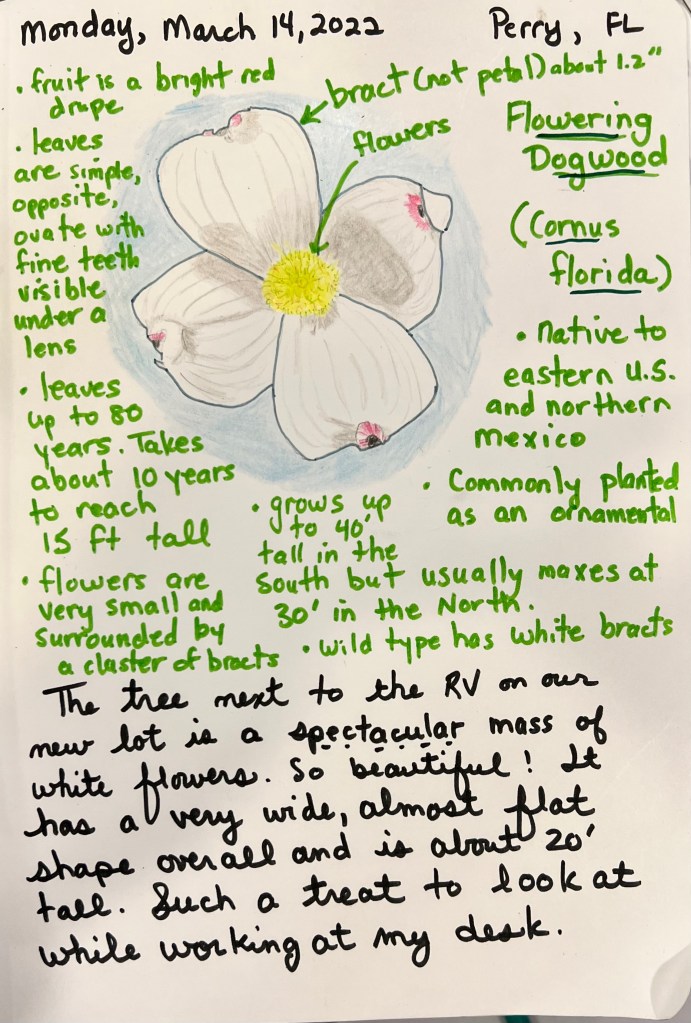 Monday, March 14, 2022
Perry, FL
• fruit is a bright red
drupe
bract (not petal) about 1.2"
flowers
Flowering
Dogwood
(Cornus
florida)
• leaves
are simple,
opposite,
ovate with
fine teeth
visible
under a
lens
• native to
eastern U.S.
and northern
mexico
• leaves
up to 80
years. Takes
about 10 years
to reach
15 ft tall
• Commonly planted
as an ornamental
• grows up
to 40'
tall in the
South but usually maxes at
30' in the North.
• flowers are
very small and
surrounded by
a claster of bracts
• wild type has white bracts
The tree next to the RV on our
new lot is a spectacular mass of
white flowers. So beautiful! It
has a very wide, almost flat
shape overall and is about 20'
tall. Such a treat to look at
while working at my desk.